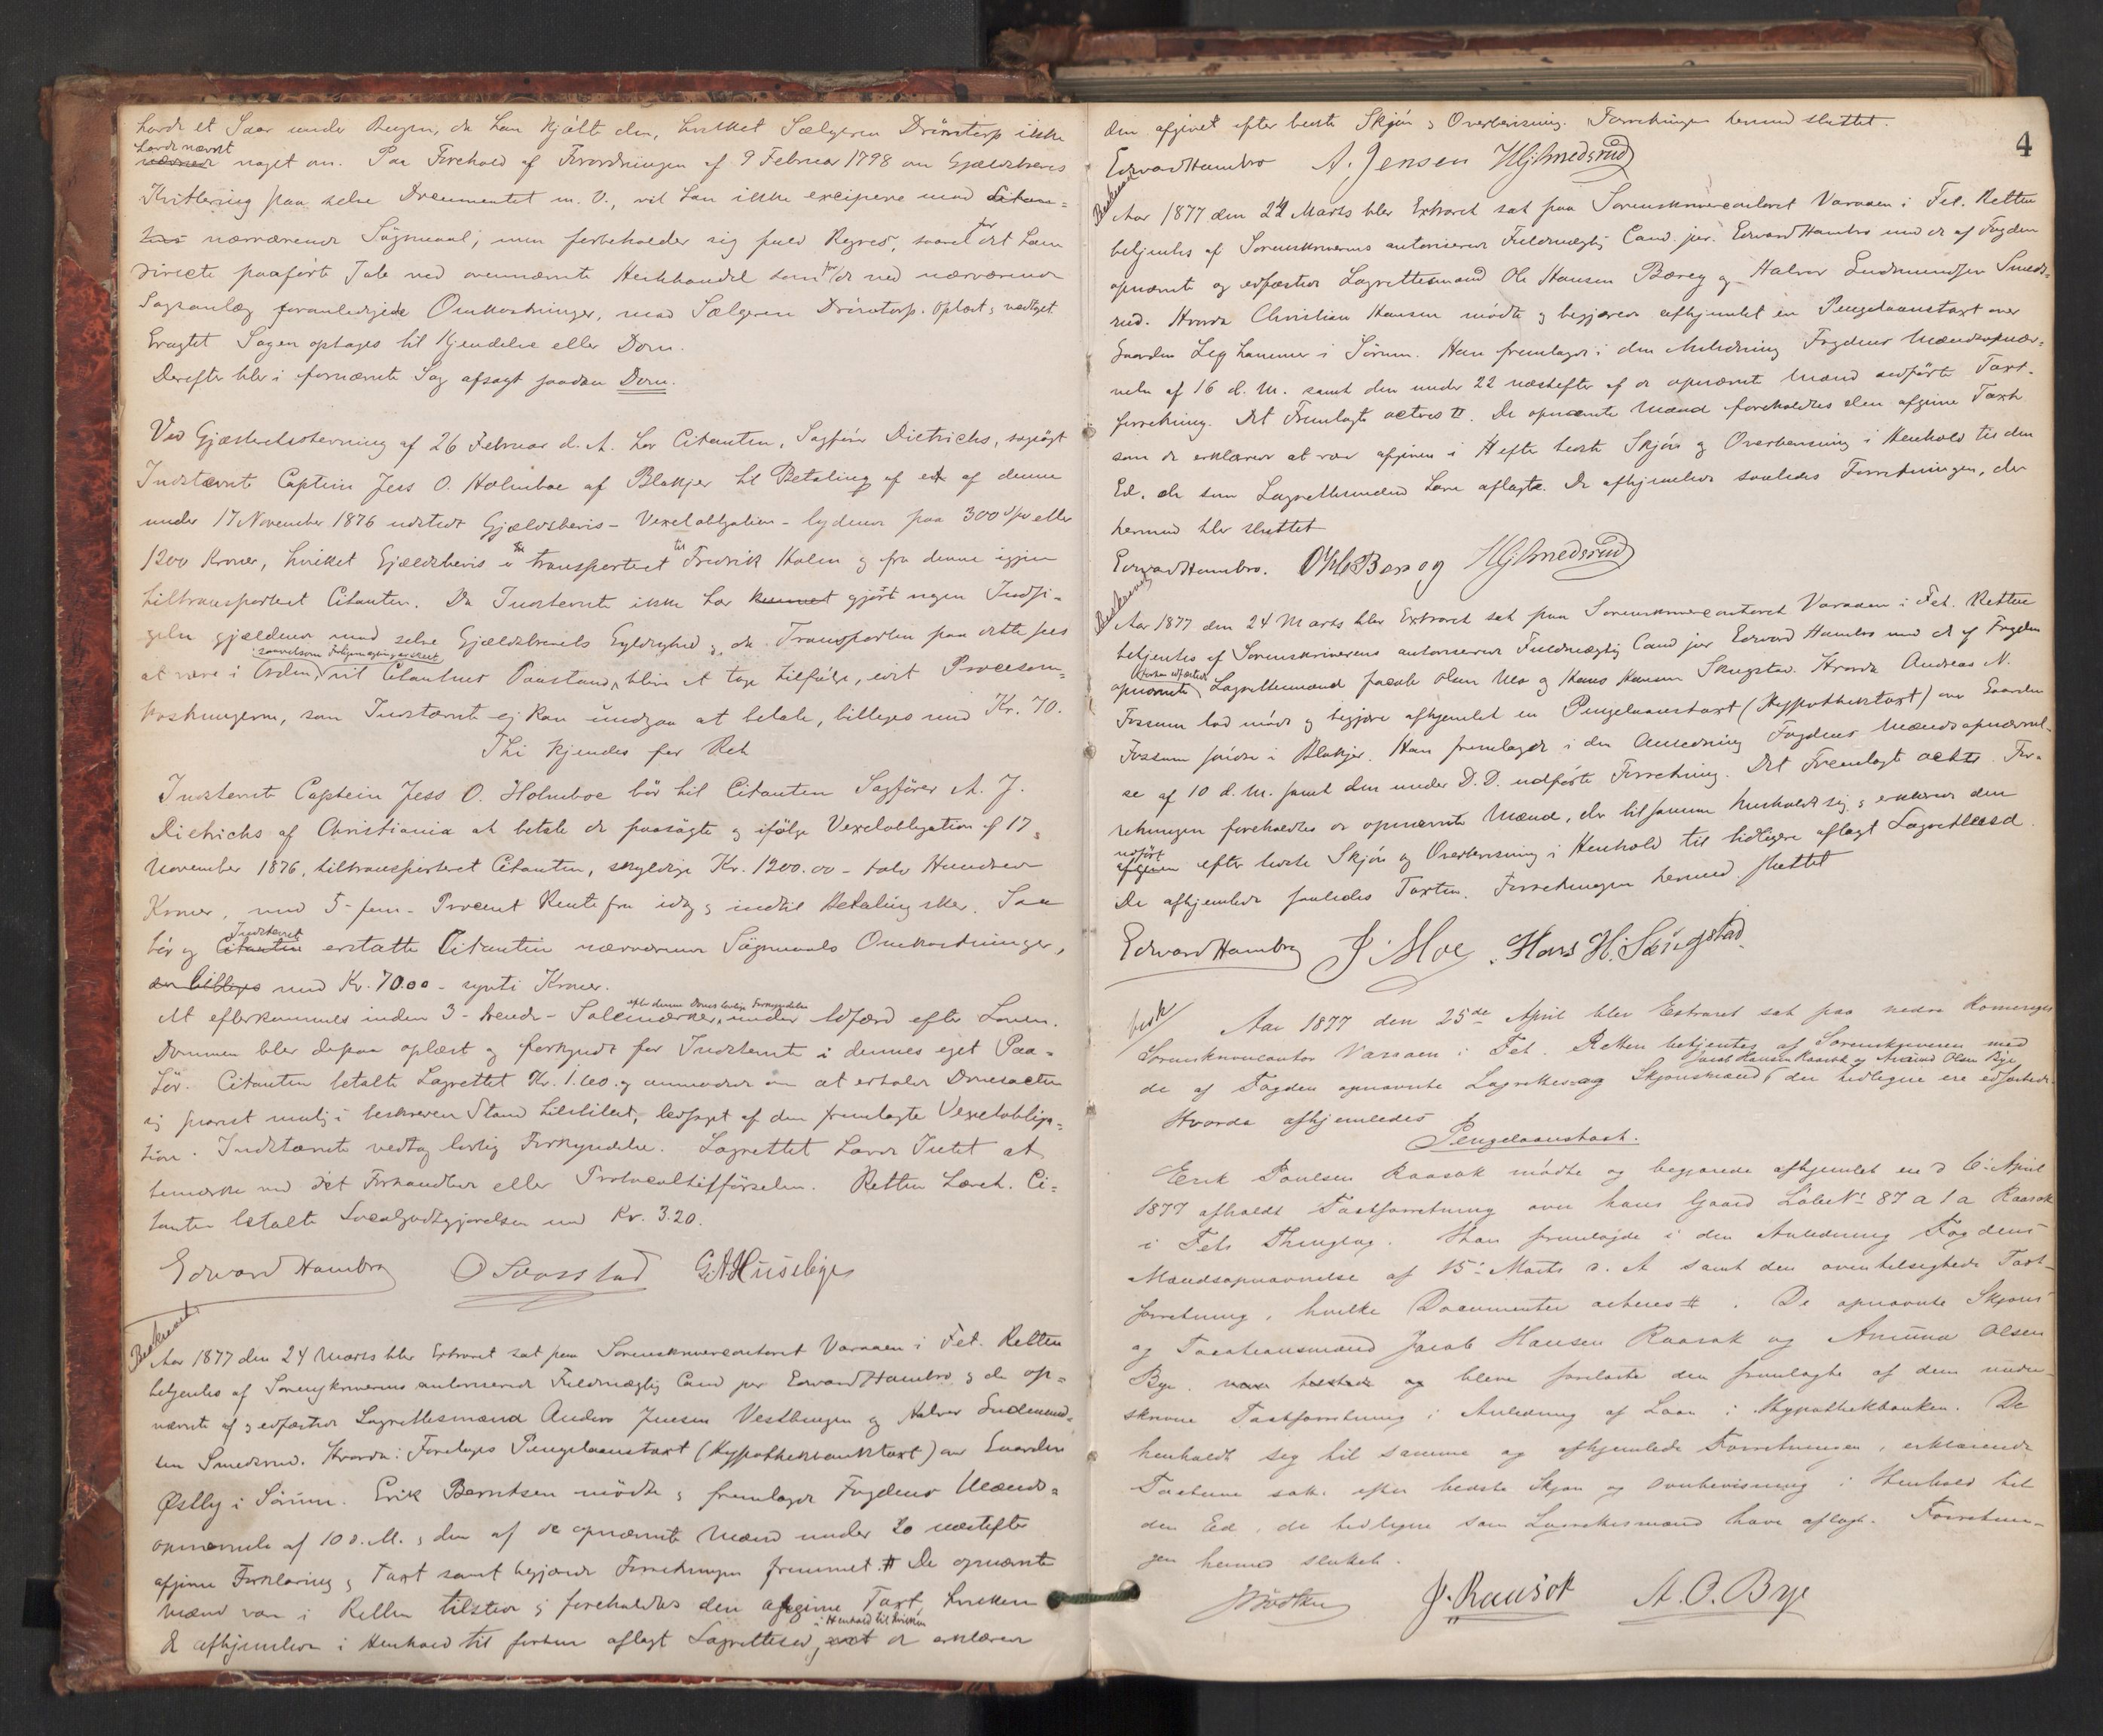 havde et Saar under Bugen, da han kjøbte den, hvilket Sælgeren Drömtorp ikke
havde nævnt
nævnede noget om. Paa Forehold af Forordningen af 9 Februar 1798 om Gjældsbrevs
Kvittering paa selve Documentet m. V., vil han ikke excipere mod Citan=
tens nærværende Søgmaal; men forbeholder sig fuld Regres, saavel for det ham
directe paaførte Tab ved ovennævnte Hestehandel som for de ved nærværende
Sagsanlæg foranledigede Omkostninger, mod Sælgeren Drömtorp. Oplæst, vedtaget
Eragtet Sagen optages til Kjendelse eller Dom.
Derefter blev i fornævnte Sag afsagt saadan Dom.
Ved Gjæsteretsstevning af 26 Februar d. A. har Citanten, Sagfører Dietrichs, sagsøgt
Indstævnte Captein Jess O. Holmboe af Blakjer til Betaling af et af denne
under 17 November 1876 udstedt Gjældsbevis - Vexelobligation - lydende paa 300 Spd eller
1200 Kroner, hvilket Gjældsbevis er transporteret til Fredrik Holm og fra denne igjen
tiltransporteret Citanten. Da Indstevnte ikke har kunnet gjört nogen Indsi=
gelse gjældende mod selve Gjældsbrevets Gyldighed, da Transporten paa dette sees
at være i Orden, vil Citantens Paastand, blive at tage tilfølge, idet Procesom=
kostningerne, som Indstævnte ej kan undgaa at betale, billiges med Kr. 70.
Thi kjendes for Ret
Indstevnte Captein Jess O. Holmboe bör til Citanten Sagfører A. J.
Dietrichs af Christiania at betale de paasøgte og ifølge Vexelobligation af 17
November 1876, tiltransporteret Citanten, skyldige Kr. 1200.00 - tolv Hundrede
Kroner, med 5 - fem - Procent Rente fra idag indtil Betaling sker. Saa
Indstevnte
bör og Citanten erstatte Citanten nærværende Søgmaals Omkostninger,
der billiges med Kr. 70.00 - sytti Kroner.
efter denne Doms lovlige Forkyndelse
At efterkommes inden 3 - trende - Solemærker, under Adfærd efter Loven.
Dommen blev derpaa oplæst og forkyndt for Indstevnte i dennes eget Paa=
hør. Citanten betalte Lagrettet Kr. 1.60. og anmodede om at erholde Domsacten
sig snarest mulig i beskreven Stand tilstillet, ledsaget af den fremlagte Vexelobliga=
tion. Indstævnte vedtog lovlig Forkyndelse. Lagrettet havde Intet at
bemærke ved det Forhandlede eller Protocoltilførselen. Retten hævet. Ci=
tanten betalte Localgodtgjørelsen med Kr. 3.20.
Edvard Hambro
Beskrevet
Aar 1877 den 24 Marts blev Extraret sat paa Sorenskrivercontoret Varaaen i Fet. Retten
betjentes af Sorenskriverens autoriserede Fuldmægtig Cand jur Edvard Hambro og de op=
nævnte og edfæstede Lagrettesmænd Anders Jensen Vestbyengen og Halvor Gudmund=
sen Smedsrud. Hvorda: Foretoges Pengelaanstaxt (Hypothekbanktaxt) over Gaarden
Østby i Sörum. Erik Berntsen mødte og fremlagde Fogdens Mænds=
opnævnelse af 10 d. M., den af de opnævnte Mænd under 20 næstefter
afgivne Forklaring og Taxt samt begjærede Forretningen fremmet. # De opnævnte
Mænd var i Retten tilstede og foreholdtes den afgivne Taxt, hvilken
i Henhold til hvilken
de afhjemlede i Henhold til forhen aflagt Lagretteed, samt de erklærede
4
den afgivet efter bedste Skjøn og Overbevisning. Forretningen hermed sluttet.
Edvard Hambro A. Jensen HGSmedsrud
Beskrevet
Aar 1877 den 24 Marts blev Extraret sat paa Sorenskrivercontoret Varaaen i Fet. Retten
betjentes af Sorenskriverens autoriserede Fuldmægtig Cand. jur. Edvard Hambro med de af Fogden
opnævnte og edfæstede Lagrettesmænd Ole Hansen Bæreg og Halvor Gudmundsen Smeds=
rud. Hvorda Christian Hansen mødte og begjærede afhjemlet en Pengelaanstaxt over
Gaarden Leghammer i Sörum. Han fremlagde i den Anledning Fogdens Mændsopnæv=
nelse af 16 d. M. samt den under 22 næstefter af de opnævnte Mænd udførte Taxt=
forretning. Det Fremlagte acteres #. De opnævnte Mænd foreholdtes den afgivne Taxt
som de erklærede at være afgiven i efter bedste Skjøn og Overbevisning i Henhold til den
Ed, de som Lagrettesmænd have aflagte. De afhjemlede saaledes Forretningen, der
hermed blev sluttet
Edvard Hambro. HGSmedsrud
Beskrevet
Aar 1877 den 24 Marts blev Extraret sat paa Sorenskrivercontoret Varaaen i Fet. Retten
betjentes af Sorenskriverens autoriserede Fuldmægtig Cand jur Edvard Hambro med de af Fogden
opnævnte Lagrettesmænd Jacob Olsen Moe og Hans Hansen Skugstad. Hvorda Andreas N.
Fossum lod møde og begjære afhjemlet en Pengelaanstaxt (Hypothektaxt) over Gaarden
Fossum søndre i Blakjer. Han fremlagde i den Anledning Fogdens Mændsopnævnel=
se af 10 d. M. samt den under D. D. udførte Forretning. Det Fremlagte acteres. For=
retningen foreholdtes de opnævnte Mænd, der tilsammen henholdt sig og erklærede den
udført
afgiven efter bedste Skjøn og Overbevisning i Henhold til tidligere aflagt Lagretteed.
De afhjemlede saaledes Taxten. Forretningen hermed sluttet
Edvard Hambro J. Moe. Hans H. Skugstad
besk
Aar 1877 den 25de April blev Extraret sat paa nedre Romeriges
Sorenskrivercontor Varaaen i Fet. Retten betjentes af Sorenskriveren med
Jacob Hansen Raasok og Amund Olsen Bye
de af Fogden opnævnte Lagrettes- og Skjønsmænd, der tidligere ere edfæstede.
Hvorda afhjemledes
Pengelaanstaxt.
Erik Poulsen Raasok mødte og begjærede afhjemlet en d 6. April
1877 afholdt Taxtforretning over hans Gaard Løbe No 87 a 1 a Raasok
i Fets Thinglag. Han fremlagde i den Anledning Fogdens
Mændsopnævnelse af 15. Marts d. A samt den ovenbesigtede Taxt-
forretning, hvilke Documenter acteres #. De opnævnte Skjøns
og Taxationsmænd Jacob Hansen Raasok og Amund Olsen
Bye. vare tilstede og bleve forelæste den fremlagte af dem under-
skrevne Taxtforretning i Anledning af Laan i Hypothekbanken. De
henholdt seg til samme og afhjemlede Forretningen, erklærende
Taxterne sat efter bedste Skjøn og Overbevisning i Henhold til
den Ed, de tidligere som Lagrettesmænd have aflagt. Forretnin-
gen hermed sluttet.
J. Raasok A. O. Bye